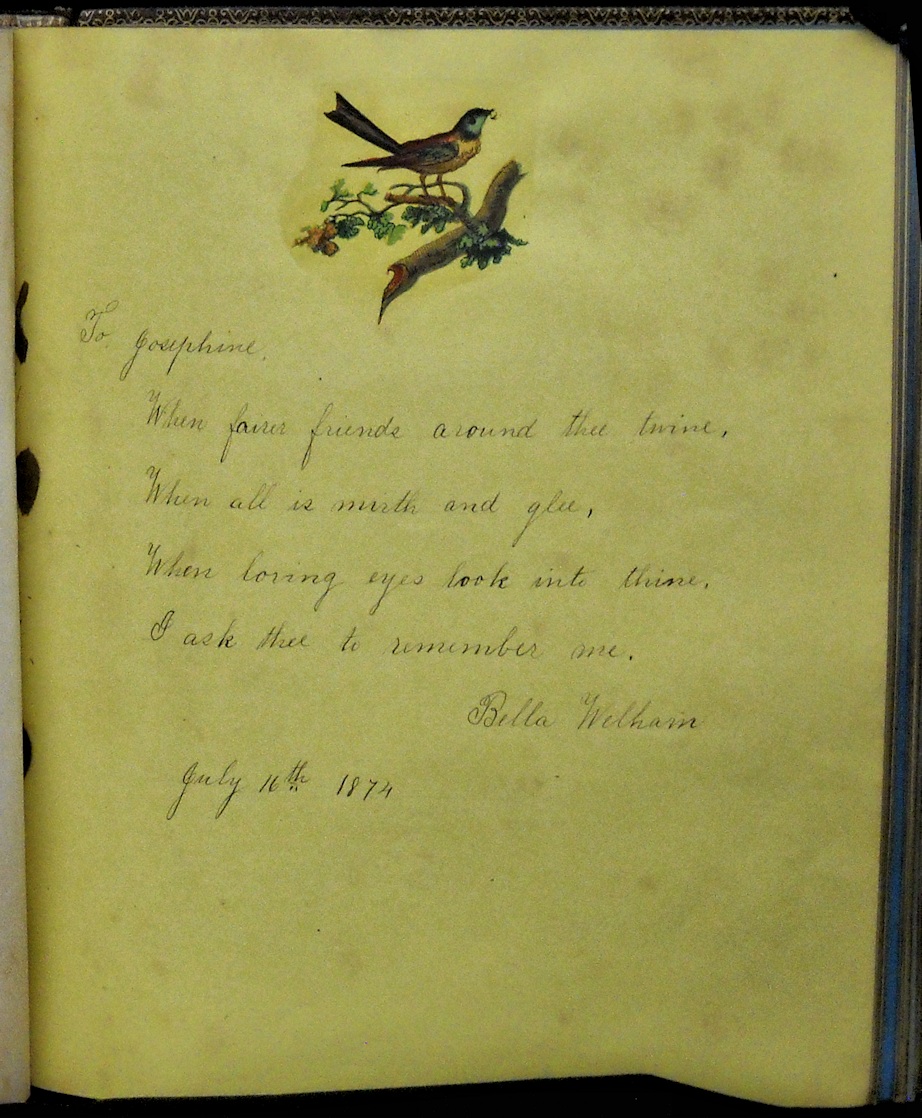 To Josephine.
When fairer friends around thee twine,
When all is mirth and glee,
When loving eyes look into thine,
I ask thee to remember me.
Bella Welham
July 16th 1874